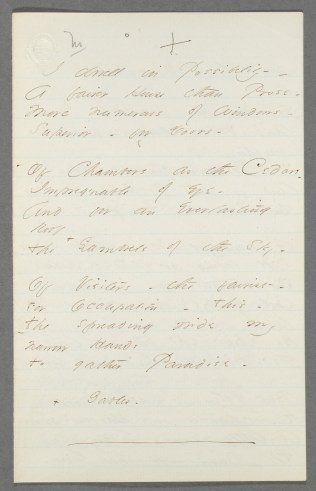 +
I dwell in Possibility -
A fairer House than Prose -
More numerous of Windows -
Superior - for Doors -
Of Chambers as the Cedars -
Impregnable of Eye -
And for an Everlasting
Roof
The + Gambrels of the Sky -
Of Visitors - the fairest -
For Occupation - This -
The spreading wide my
narrow Hands
To gather Paradise -
+ Gables -